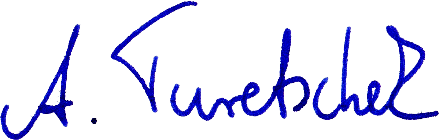 A. Turetschek